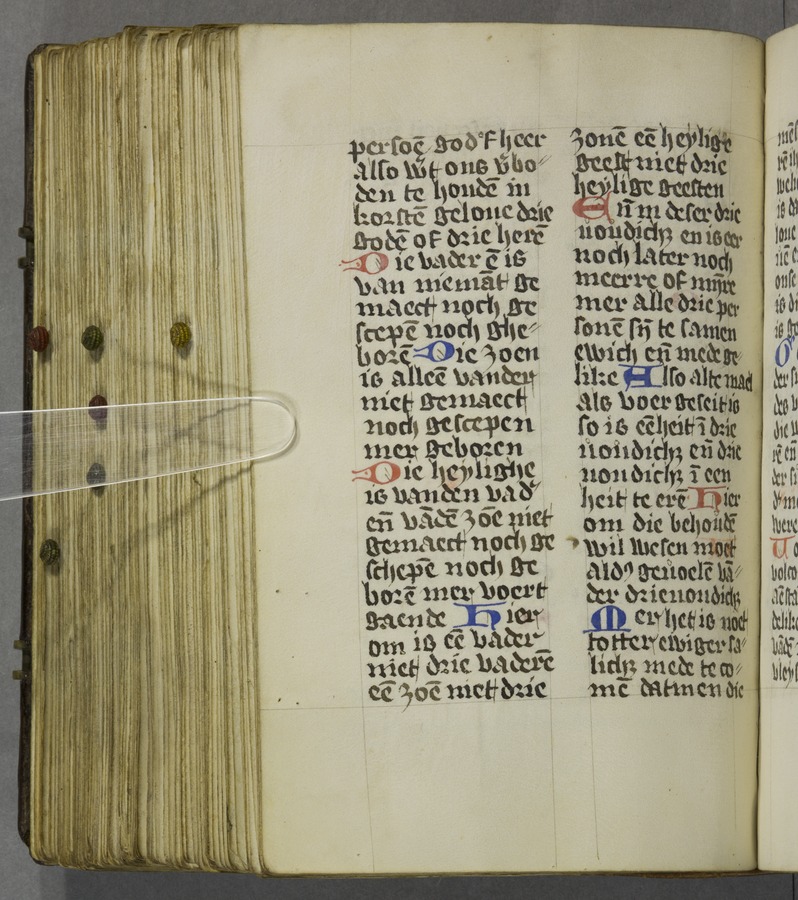 persoē god of heer
also wt ons vbo
den te houdē in
korstē geloue drie
godē of drie herē
Die vader ē is
van niemāt ge
maect noch ge
scepē noch ghe
borē Die zoen
is alleē vander
niet gemaect
noch gescepen
mer geboren
Die heylighe
is vanden vad
eñ vādē zōe niet
gemaect noch ge
schepē noch ge
borē mer voert
gaende Hier
om is eē vader
niet drie vaderē
eē zoē niet drie
zonē eē heylige
geest niet drie
heylige geesten
Eñ in deser drie
uoudichz en is eer
noch later noch
meerre of mīre
mer alle drie per
sonē sȳ te samen
ewich eñ mede ge
like Also alte mael
als voer geseit is
so is eēheit ī drie
uoudichz eñ drie
uoudichz ī een
heit te erē Hier
om die behoudē
wil wesen moet
aldꝰ geuoelē vā
der drieuoudichz
Mer het is noet
totter ewiger sa
lichz mede te co
mē datmen die